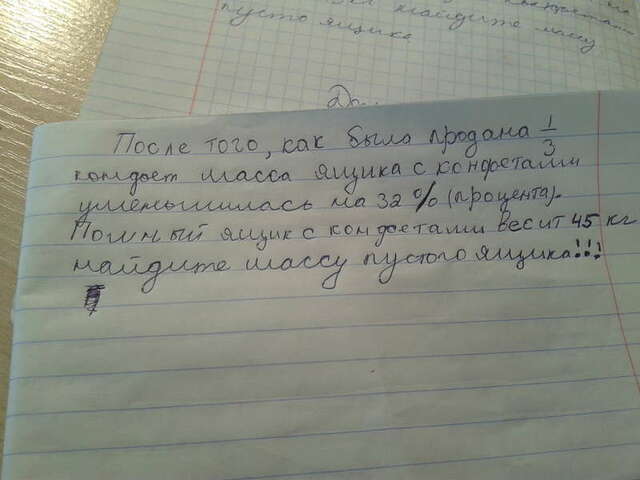 пусто ящика
найдите массу
После того, как была продана 1/3
конфет масса ящика с конфетами
уменьшилась на 32 % (процента).
Полный ящик с конфетами весит 45 кг
найдите массу пустого ящика!!!